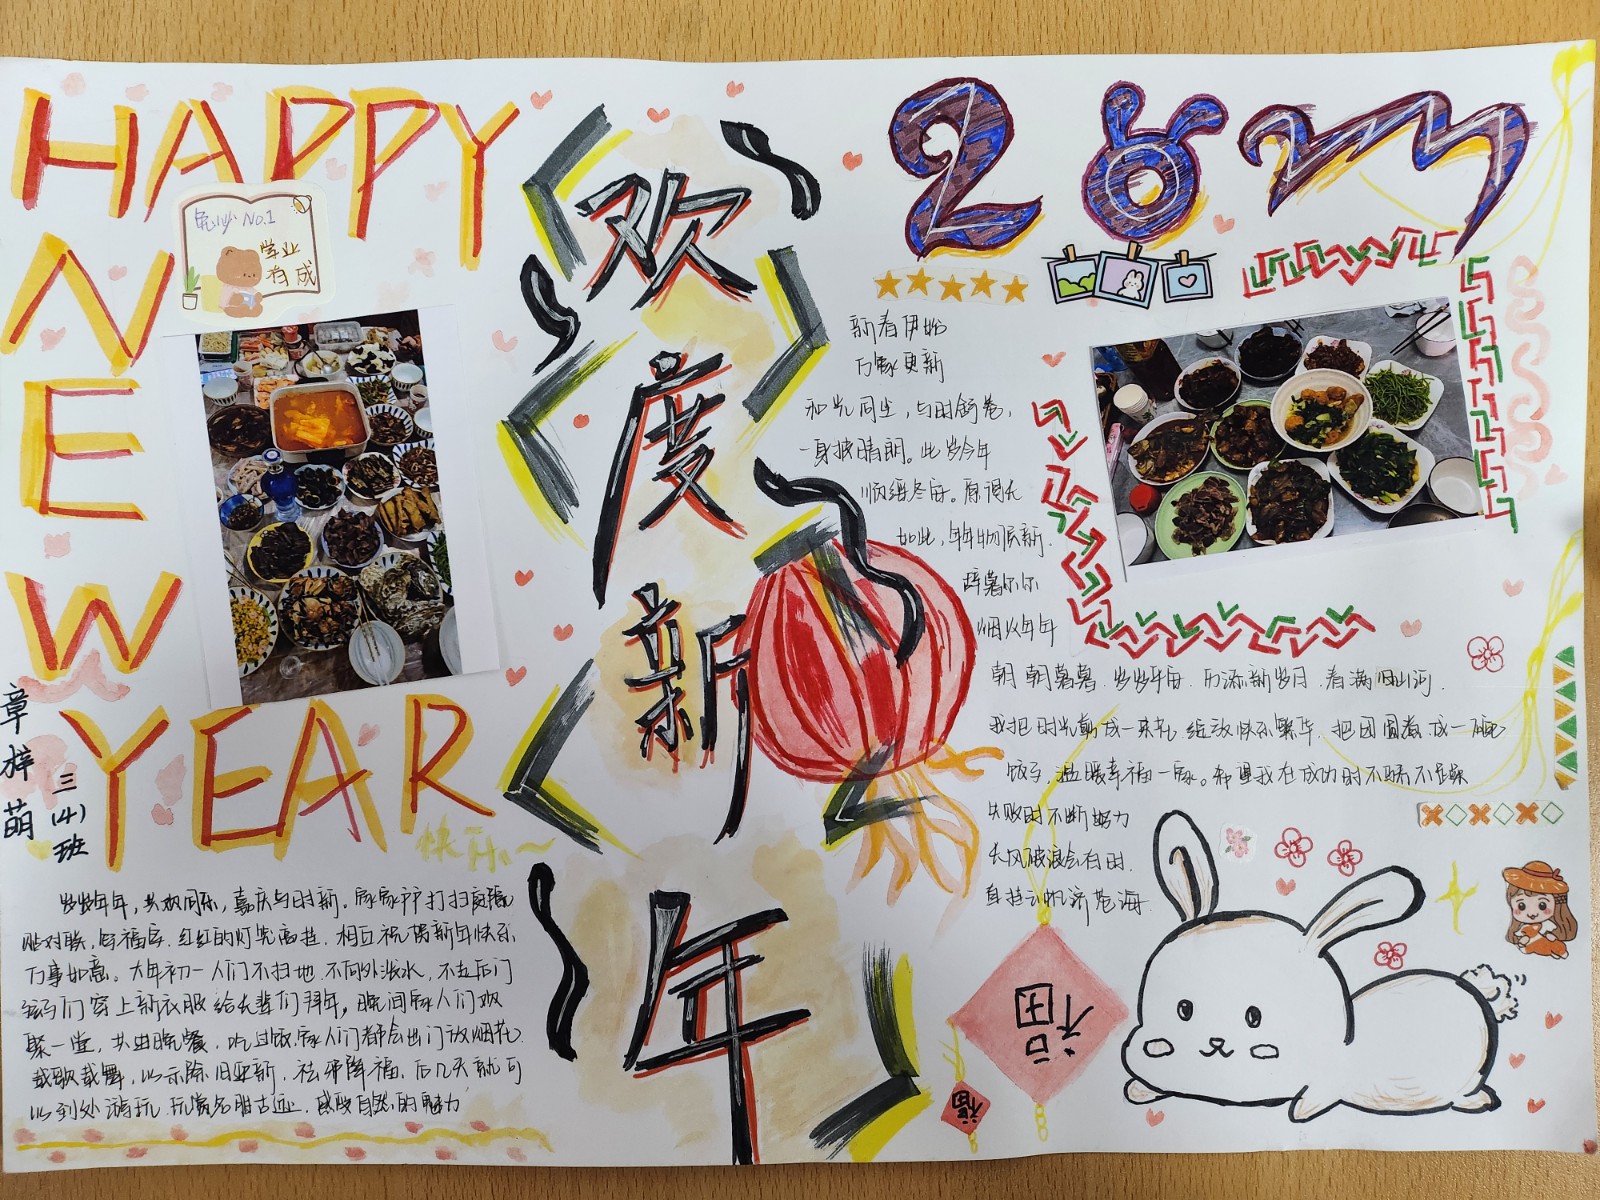 HAPPY
NEW
YEAR
兔兆 No.1
学业
有成
章梓萌
三(4)班
快乐~
欢度新年
岁岁年年,共欢同乐,嘉庆与时新。家家户户打扫庭院
贴对联,写福字,红红的灯笼高挂,相互祝贺新年快乐
万事如意。大年初一人们不扫地,不向外泼水,不走后门
孩子们穿上新衣服给长辈们拜年,晚间家人们欢
聚一堂,共进晚餐,吃过饭,家人们都会出门放烟花
载歌载舞,以示除旧迎新,祛邪降福,后几天就可
以到处游玩,玩赏名胜古迹,感受自然的魅力
新春伊始
万象更新
和光同尘,与时舒卷,
一身披晴朗。此岁今年
如此,年年物候新.
辞暮尔尔
烟火年年
朝朝暮暮.岁岁平安.历添新岁月.春满旧山河.
我把时光剪成一束礼 绽放快乐繁华.把团圆煮成一碗
饺子,温暖幸福一家。希望我在成功时不骄不躁
失败时不断努力
长风破浪会有时.
直挂云帆济沧海
福
福